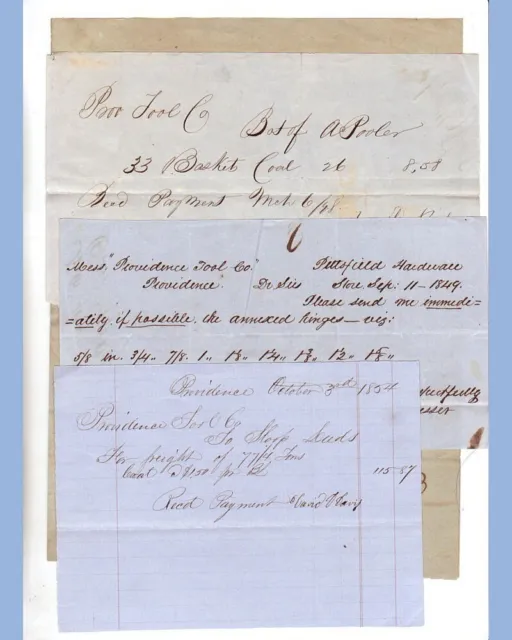 Prov Tool Co
Bot of A Pooler
33 Basket Coal 26 8,58
Recd Payment Mch 6/48
Mess, "Providence Tool Co." Pittsfield Hardware
Providence" Dr Sirs Store Sep: 11 - 1849.
Please send me immedi=
=atily if possible, the annexed hinges - viz:
5/8 in. 3/4, 7/8. 1,
Providence October 3rd 1854
Providence Tool Co
To Sloop
For freight of Tons
Coal 115 87
Recd Payment David